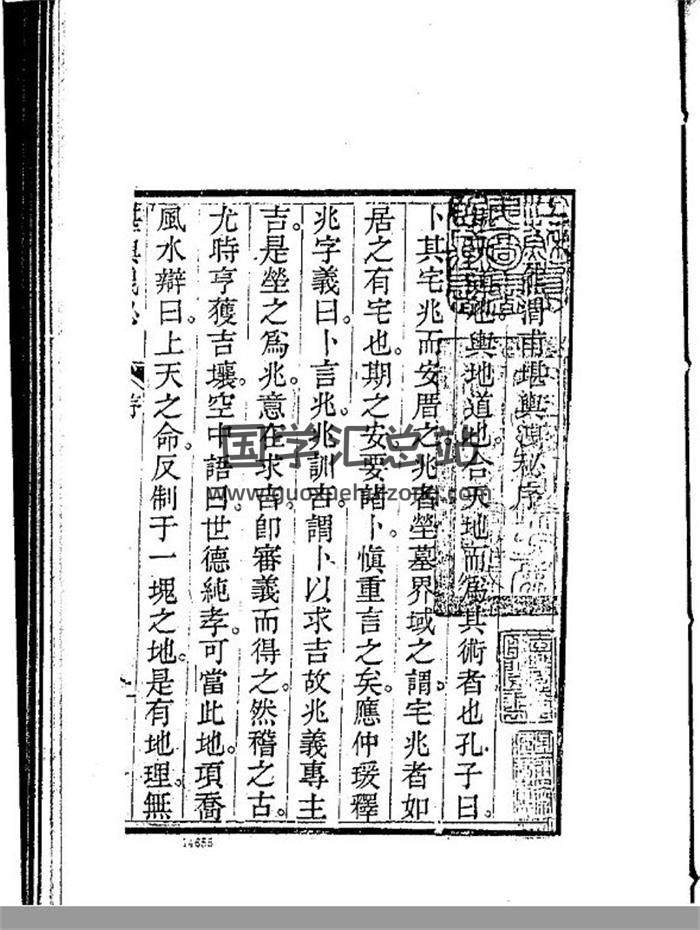 渭甫堪輿秘序
地輿地道也合天地而爲其術者也孔子曰。
卜其宅兆而安厝之兆者塋墓界域之謂宅兆者如
居之有宅也。期之安要諸卜。愼重言之矣。應仲瑗釋
兆字義曰。卜言兆。兆訓吉。謂卜以求吉故兆義專主
吉。是塋之爲兆。意在求吉。卽審義而得之。然稽之古。
尤時亨獲吉壤。空中語曰。世德純孝。可當此地。項喬
風水辯曰。上天之命。反制于一塊之地。是有地理。無
序
国学汇总站
14655